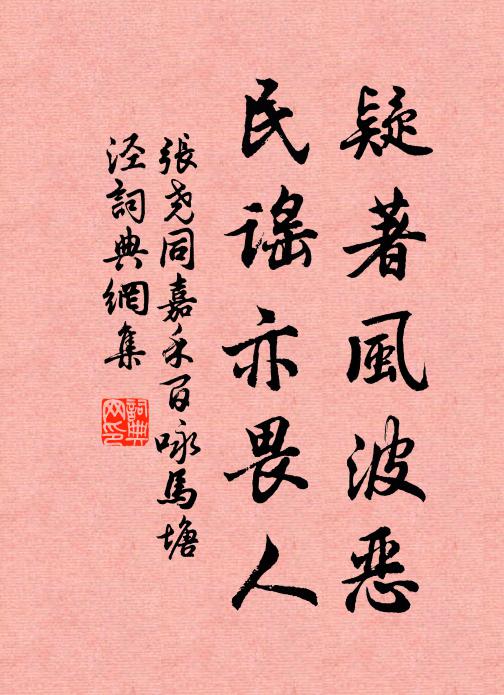 疑著風波惡
民謠亦畏人
張堯同嘉禾百咏馬塘
涇詞典網集
詞典
网印